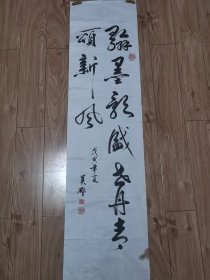 翰墨歌盛世丹青
頌新風
戊寅年夏